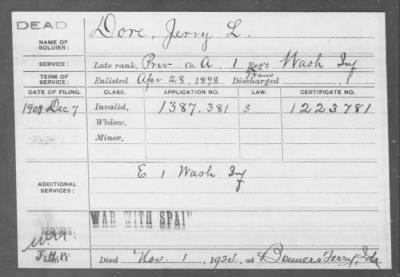 DEAD
NAME OF SOLDIER: Dore, Jerry L.
SERVICE: Late rank, Priv Co. A, 1 Reg't Wash Inf
TERM OF SERVICE: Enlisted Apr 28, 1898 Discharged
DATE OF FILING. CLASS. APPLICATION NO. LAW. CERTIFICATE NO.
1908 Dec 7 Invalid, 1387,381 S 1223781
Widow,
Minor,
ADDITIONAL SERVICES: E 1 Wash Inf
WAR WITH SPAIN
Died Nov. 1, 1924, at Bonners Ferry, Ida